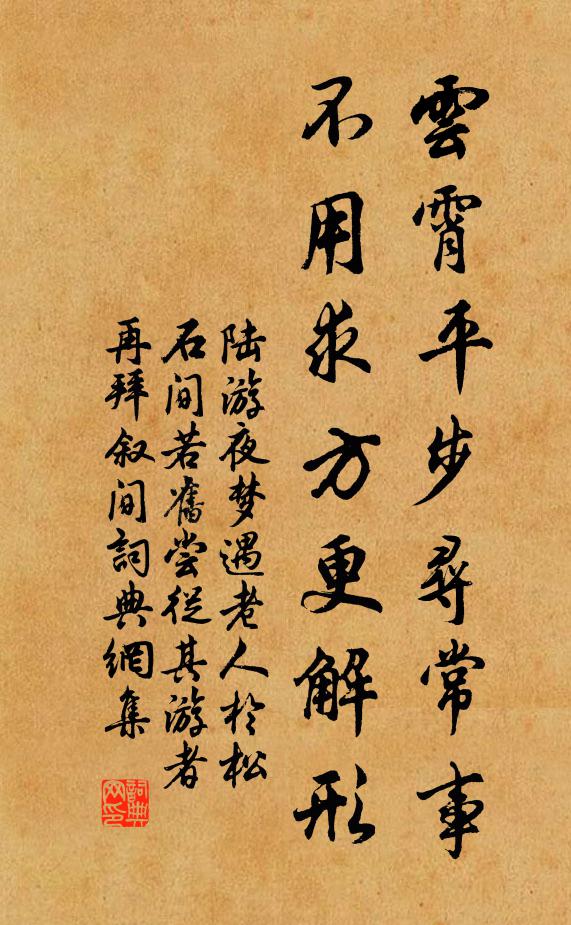 雲霄平步尋常事
不用求方更解形
陆游夜梦遇老人於松
石间若舊尝從其游者
再拜叙间詞典網集
詞典网印